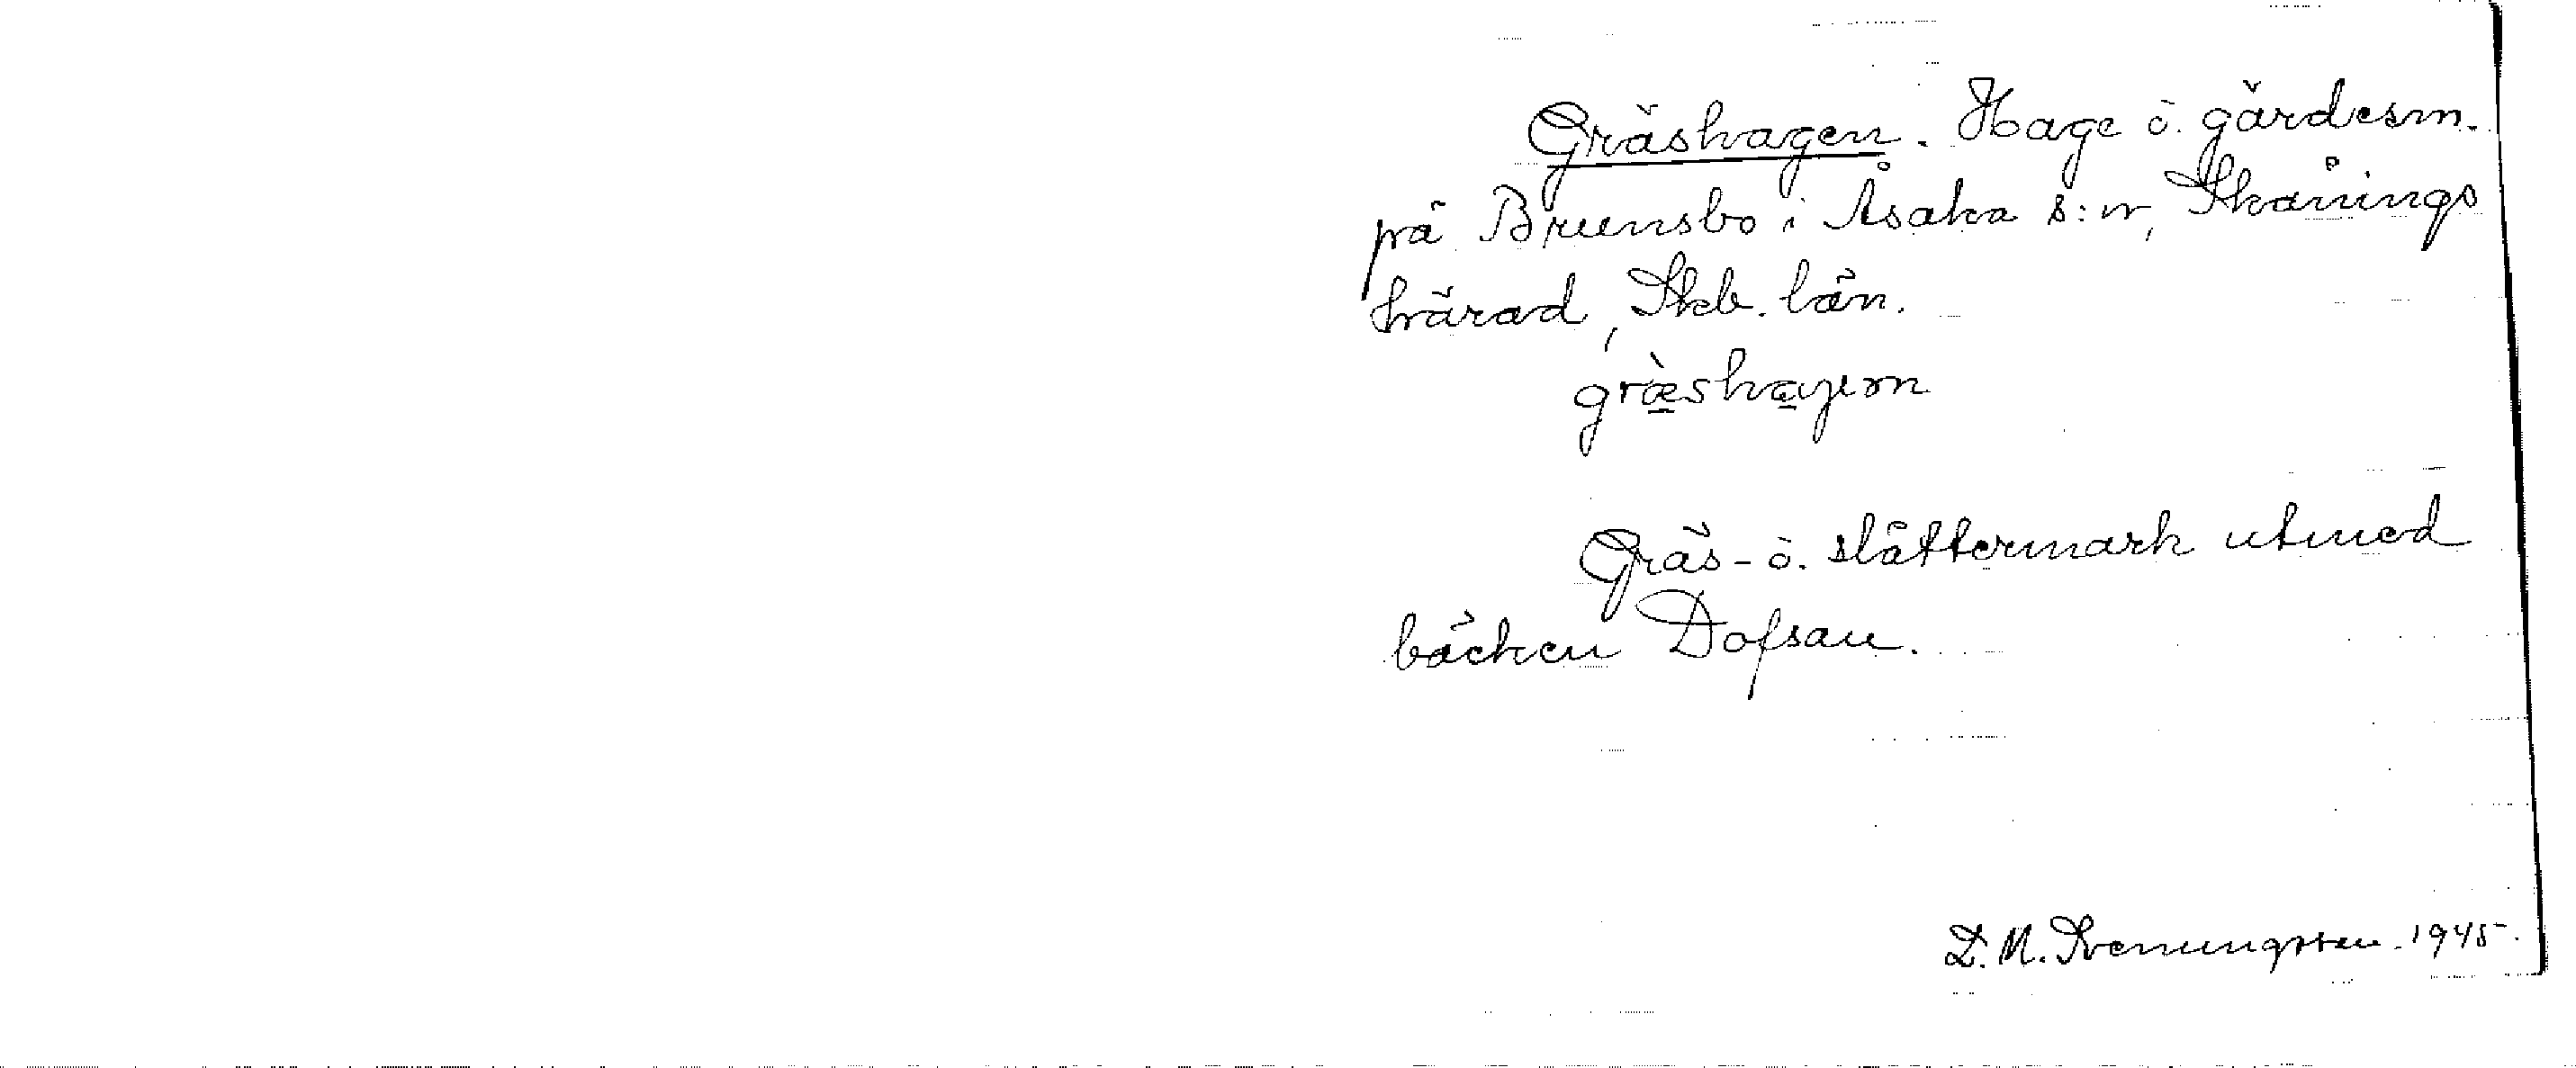 Gräshagen. Hage o. gärdesm.
på Brunsbo i Åsaka s:n, Skånings
härad, Skb. län.
Gräs- o. slåttermark utmed
bäcken Dofsan.
D. M. Svenungsson 1945.